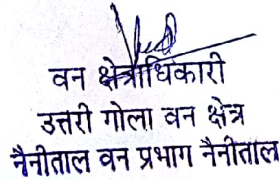 वन क्षेत्राधिकारी
उत्तरी गोला वन क्षेत्र
नैनीताल वन प्रभाग नैनीताल